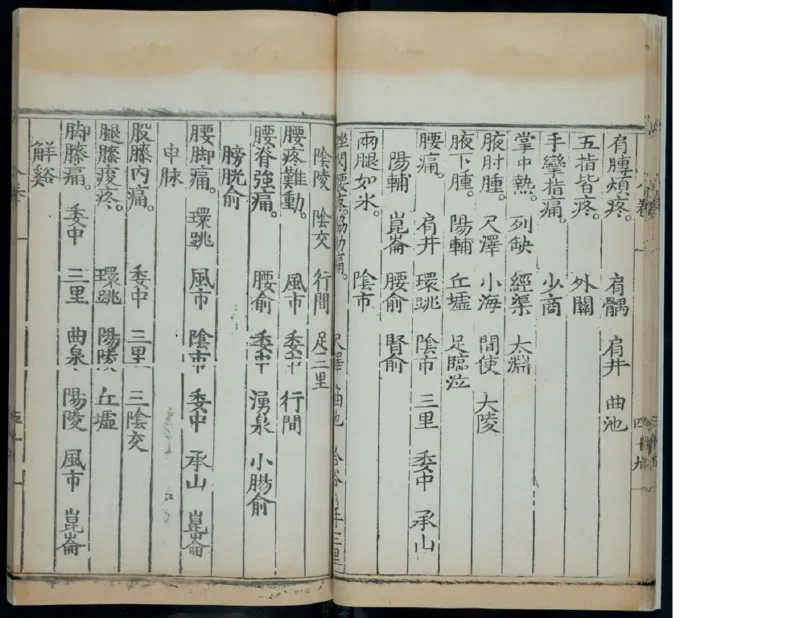 肩腫煩疼。 肩髃 肩井 曲池
五指皆疼。 外關
手攣指痛。 少商
掌中熱。 列缺 經渠 太淵
腋肘腫。 尺澤 小海 間使 大陵
腋下腫。 陽輔 丘墟 足臨泣
腰痛。 肩井 環跳 陰市 三里 委中 承山
陽輔 崑崙 腰俞 腎俞
兩腿如氷。 陰市
挫閃腰疼。脇肋痛。 尺澤 曲池 合谷 手三里
陰陵 陰交 行間 足三里
腰疼難動。 風市 委中 行間
腰脊強痛。 腰俞 委中 湧泉 小腸俞
膀胱俞
腰脚痛。 環跳 風市 陰市 委中 承山 崑崙
申脉
股膝內痛。 委中 三里 三陰交
腿膝痠疼。 環跳 陽陵 丘墟
脚膝痛。 委中 三里 曲泉 陽陵 風市 崑崙
解谿